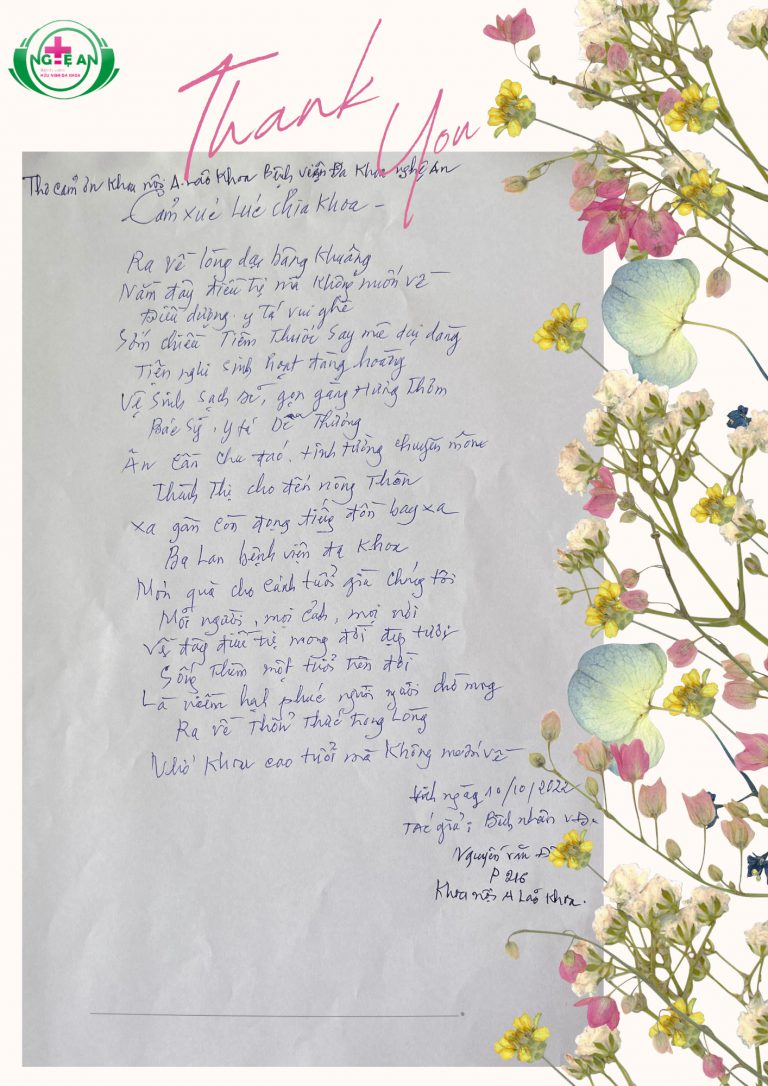 NGHỆ AN
HỮU NGHỊ ĐA KHOA
Thank
You
Thơ cảm ơn Khoa nội A. Lão Khoa Bệnh viện Đa Khoa nghệ An
Cảm xúc lúc chia Khoa -
Ra về lòng dạ bâng khuâng
Nằm đây điều trị mà không muốn về
Điều dưỡng. y tá vui ghê
Sớm chiều Tiêm Thuốc say mê dịu dàng
Tiện nghi sinh hoạt đàng hoàng
Vệ sinh sạch sẽ, gọn gàng Hương Thơm
Bác Sỹ, y tá Dễ Thương
Ân cần chu đáo. tinh tường chuyên môn
Thành Thị cho đến nông Thôn
xa gần còn đọng tiếng đồn bay xa
Ba Lan bệnh viện đa khoa
Món quà cho cánh tuổi già chúng tôi
Mỗi người, mọi cảnh, mọi nơi
Về đây điều trị mong đời đẹp tươi
Sống Thêm một tuổi trên đời
Là niềm hạnh phúc người người chờ mong
Ra về Thổn Thức trong Lòng
Nhớ Khoa cao tuổi mà không muốn về
Vinh ngày 10/10/2022
TÁC giả: Bệnh nhân
Nguyễn văn
P 216
Khoa nội A Lão Khoa.